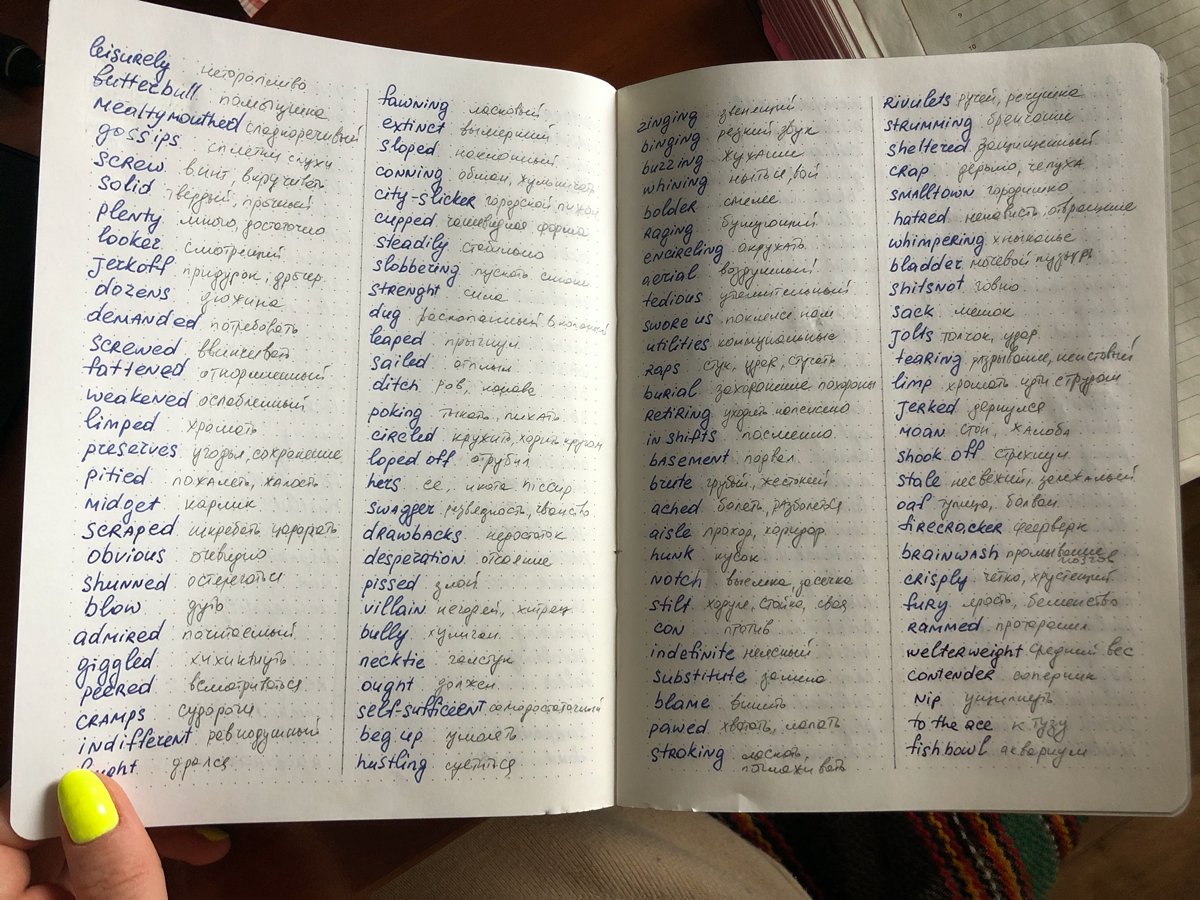 leisurely неторопливо
butterbull пампушка
mealtymouthed сладкоречивый
gossips сплетни слухи
screw винт, вкручивать
solid твёрдый, прочный
plenty много, достаточно
looker смотрящий
jerkoff придурок, дрочер
dozens дюжина
demanded потребовать
screwed ввинчивать
fattened откормленный
weakened ослабленный
limped хромать
preserves угодья, сохранение
pitied пожалеть, жалость
midget карлик
scraped шкребать царапать
obvious очевидно
shunned остерегаться
blow дуть
admired почитаемый
giggled хихикнуть
peered всматриваться
cramps судороги
indifferent равнодушный
дрался
fawning ласковый
extinct вымерший
sloped наклонный
conning обман, жульничать
city-slicker городской пижон
cupped чашевидная форма
steadily стабильно
slobbering пускать слюни
strenght сила
dug раскопанный вкопанный
leaped прыгнул
sailed отплыл
ditch ров, канава
poking тыкать, пихать
circled кружить, ходить кругом
loped off отрубил
hers её
swagger развязность, чванство
drawbacks недостаток
desperation отчаяние
pissed злой
villain негодяй, хитрец
bully хулиган
necktie галстук
ought должен
self-sufficient самодостаточный
beg up умолять
hustling суетиться
zinging звенящий
binging резкий звук
buzzing жужжание
whining ныться, вой
bolder смелее
raging бушующий
encircling окружать
aerial воздушный
tedious утомительный
swore us поклялся нам
utilities коммунальные
raps стук, удар, стучать
burial захоронение похороны
retiring уходить на пенсию
in shifts посменно
basement подвал
brute грубый, жестокий
ached болеть, разболеться
aisle проход, коридор
hunk кусок
notch выемка, засечка
stilt ходуля, стойка, свая
con против
indefinite неясный
substitute замена
blame винить
pawed хватать, лапать
stroking ласкать
поглаживать
rivulets ручей, речушка
strumming бренчание
sheltered защищенный
crap дерьмо, чепуха
smalltown городишко
hatred ненависть, отвращение
whimpering хныканье
bladder мочевой пузырь
shitsnot говно
sack мешок
jolts толчок, удар
tearing разрывание, неистовый
limp хромать, идти с трудом
jerked дернулся
moan стон, жалоба
shook off стряхнул
stale несвежий, залежалый
oaf тупица, болван
firecracker фейерверк
brainwash промывание
мозгов
crisply чётко, хрустящий
fury ярость, бешенство
rammed протаранил
welterweight средний вес
contender соперник
nip ущипнуть
to the ace к тузу
fishbowl аквариум